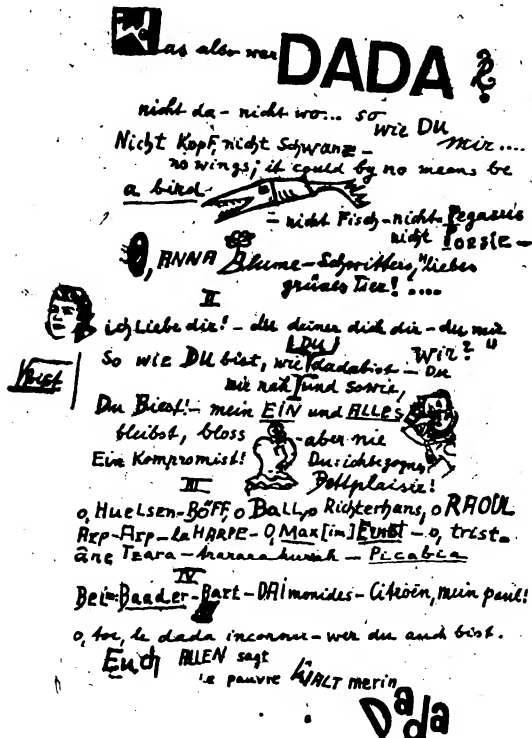 Was also war DADA?
nicht da – nicht wo... so
wie DU
mir....
Nicht Kopf, nicht Schwanz –
no wings; it could by no means be
a bird
– nicht Fisch – nicht Pegasus
nicht POESIE –
O, ANNA Blume – Schwitters, "liebes
grünes Tier!....
II
ich liebe dir! – du deiner dich dir – du mir
Wir?"
DU
So wie DU bist, wie dadabist – Du
mir nah und sowit,
Biest
Du Biest! – mein EIN und ALLES
bleibst, bloss – aber nie
Ein Kompromist! Du: ichbezogns
Bettplaisir!
III
o, Huelsen-BÖFF, o BALL, o Richterhans, o RAOUL
Arp – Arp – la HARPE – O, Max [im] Ernst – o, trist-
âne Tzara – trararahurah – Picabia
IV
Bei = Baader – Bart – DAImonides – Citroën, mein paul!
o, toi, le dada inconnu – wer du auch bist.
Euch ALLEN sagt
le pauvre WALT merin
Dada